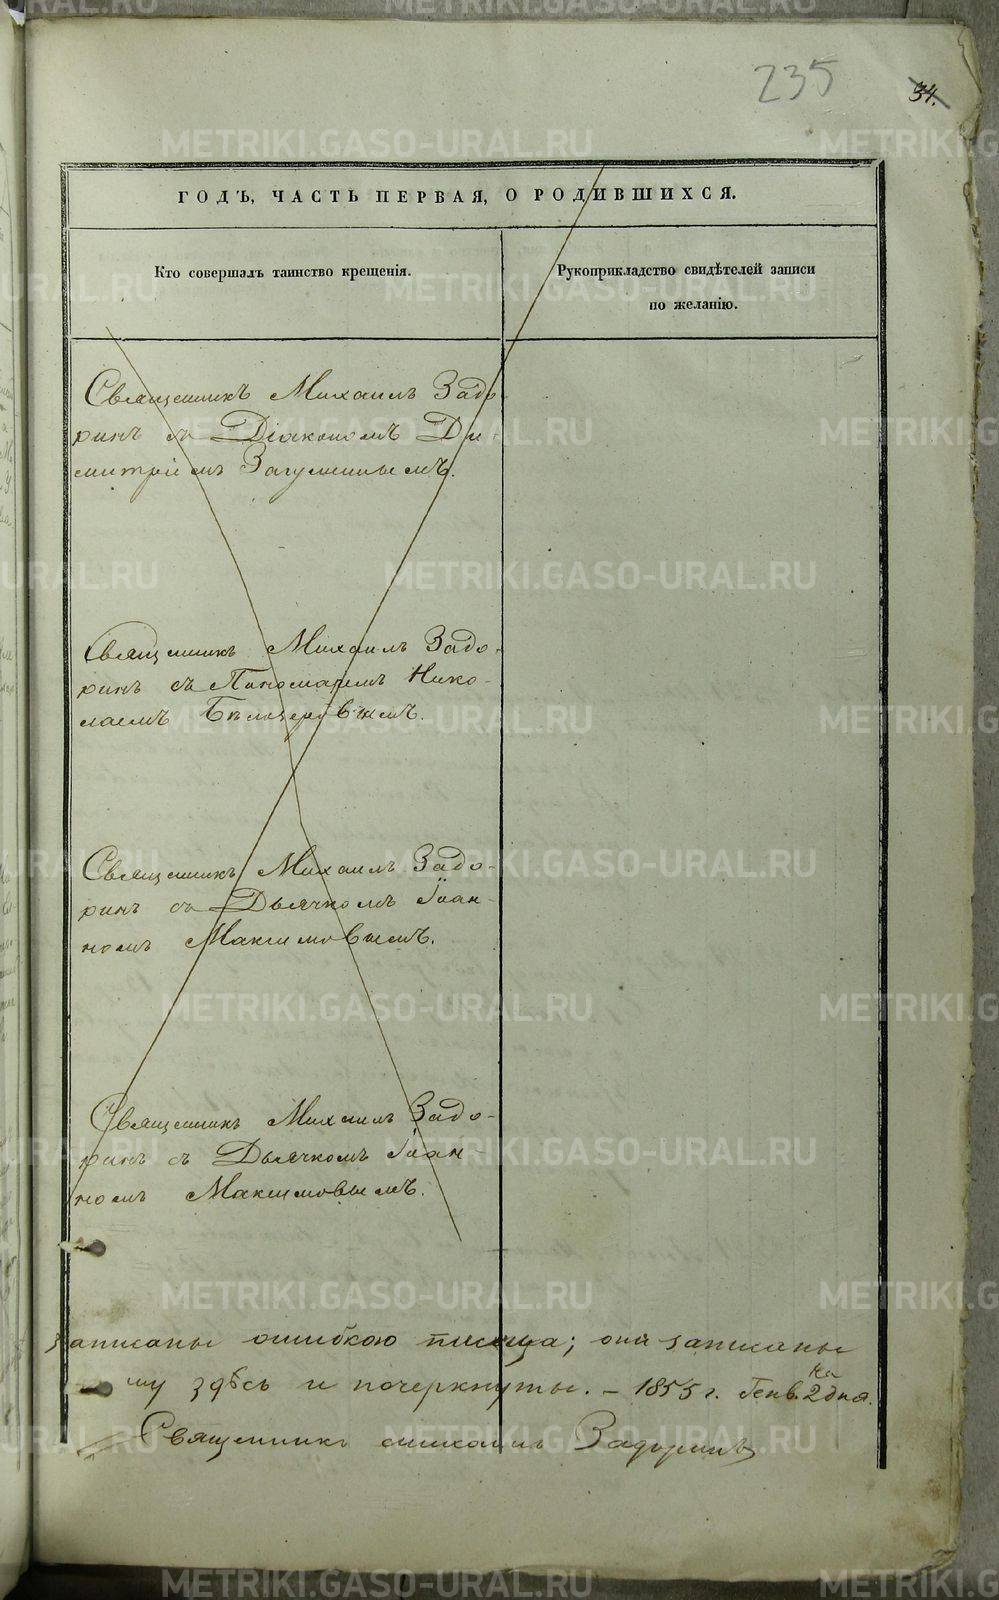 235
34.
ГОДЪ, ЧАСТЬ ПЕРВАЯ, О РОДИВШИХСЯ.
Кто совершалъ таинство крещенія.
Рукоприкладство свидѣтелей записи
по желанію.
Священникъ Михаилъ Задо-
ринъ съ Діакономъ Ди-
митріемъ Загуменнымъ.
Священникъ Михаилъ Задо-
ринъ съ Пономаремъ Нико-
лаемъ Бѣлозеровымъ.
Священникъ Михаилъ Задо-
ринъ съ Дьячкомъ Іоан-
номъ Максимовымъ.
Священникъ Михаилъ Задо-
ринъ съ Дьячкомъ Іоан-
номъ Максимовымъ.
записаны ошибкою писца; они записаны
му здѣсь и почеркнуты. – 1855 г. Генв. на 2 дня.
Священникъ Михаилъ Задоринъ
METRIKI.GASO-URAL.RU